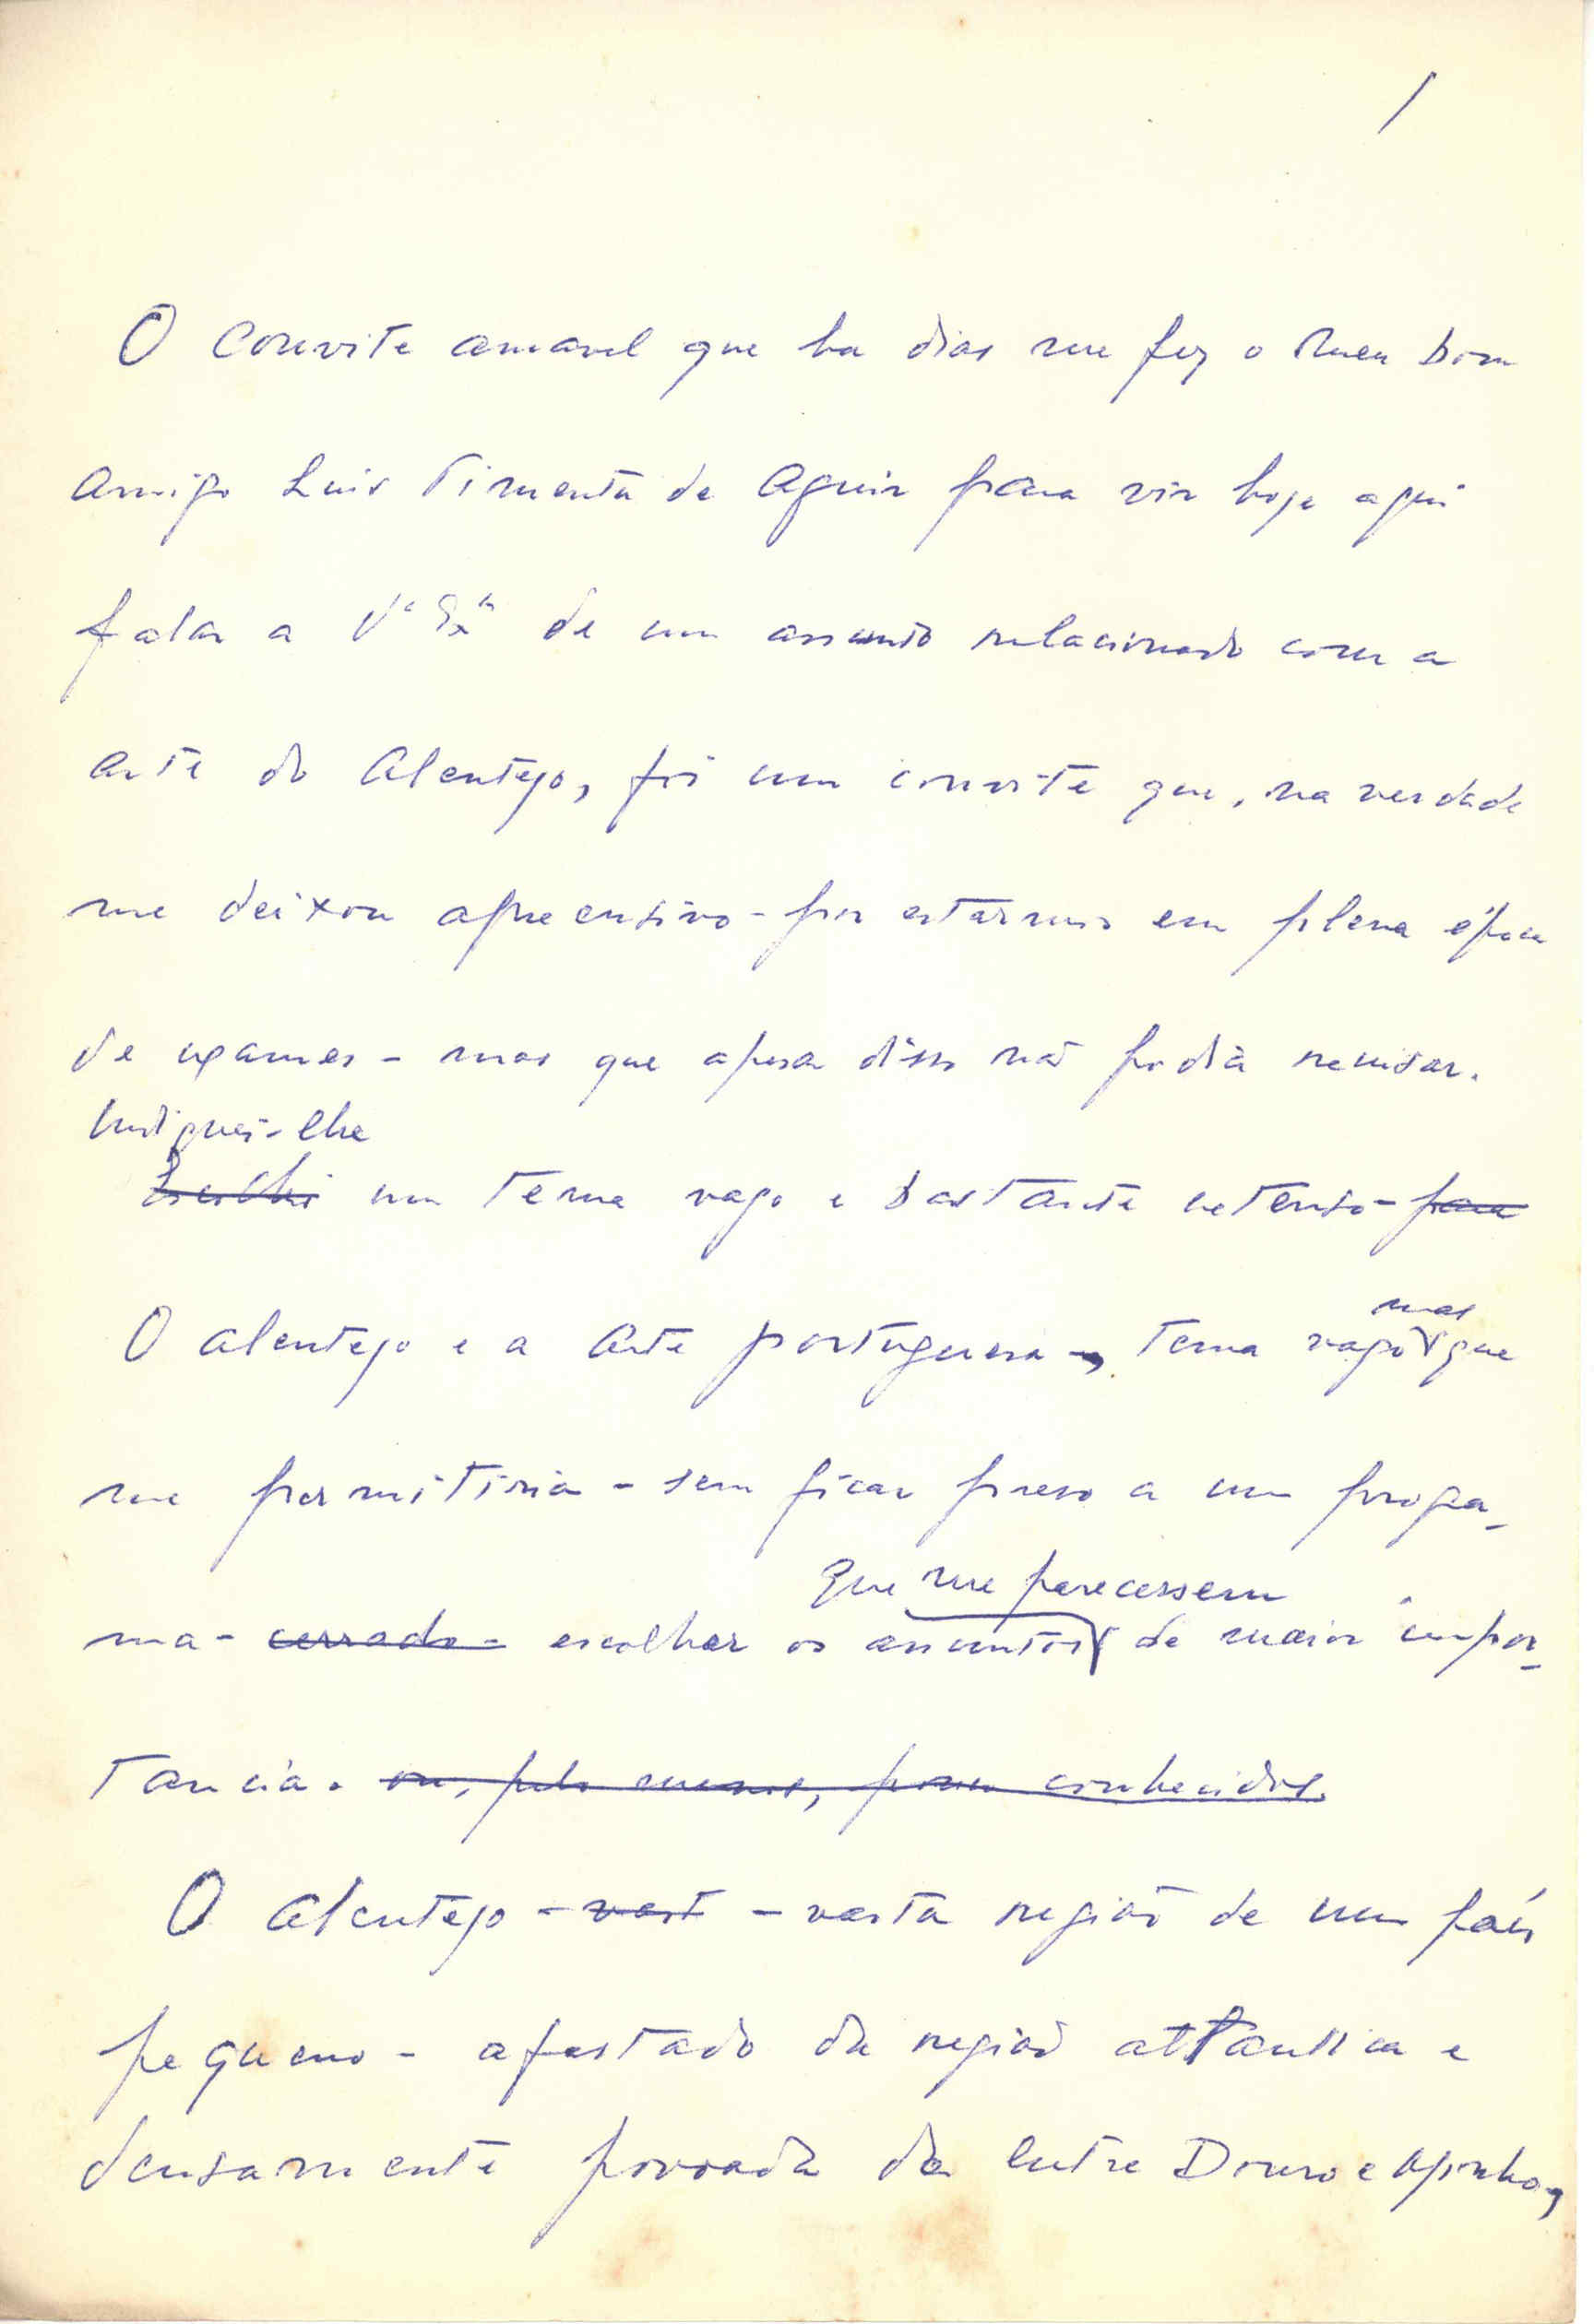 1
O Convite amavel que ha dias me fez o meu bom
Amigo Luis Pimenta de Aguir para vir hoje aqui
falar a V.as Ex.as de um assunto relacionado com a
arte do Alentejo, foi um convite que, na verdade
me deixou apreensivo - por estarmos em plena época
de exames - mas que apesar disso não podia recusar.
Indiquei-lhe
Escolhi um tema vago e bastante extenso - para
mas
O Alentejo e a Arte portuguesa -, tema vago que
me permitiria - sem ficar preso a um progra-
que me parecessem
ma - cerrado - escolher os assuntos de maior impor-
tancia. ou, pelo menos, pouco conhecidos.
O Alentejo - vast - vasta região de um país
pequeno - afastado da região atlantica e
densamente povoada da Entre Douro e Minho,